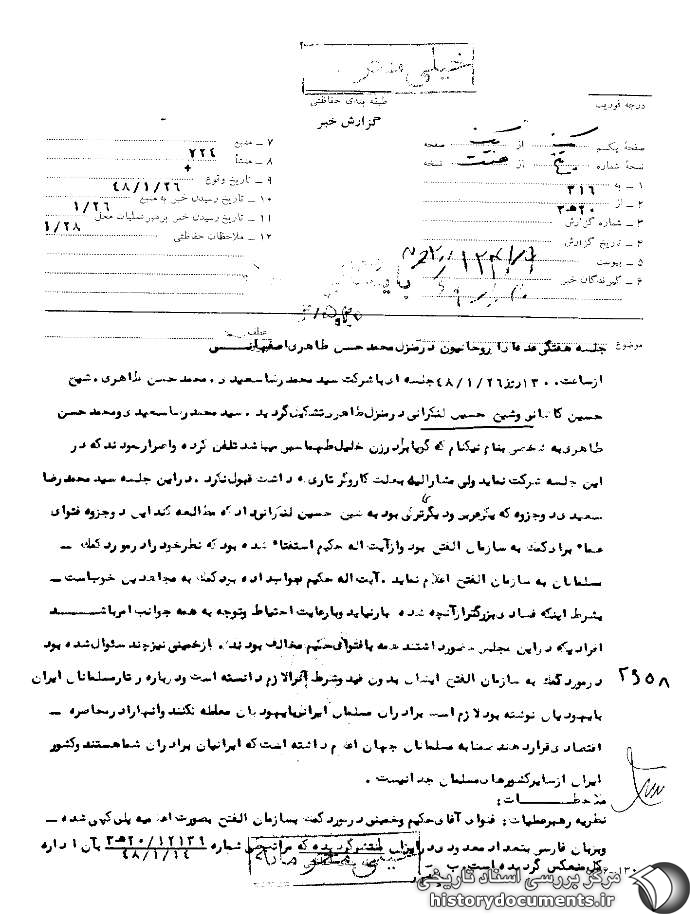 خیلی محرمانه
طبقه بندی حفاظتی
گزارش خبر
درجه فوریت
صفحهٔ یکم از صفحه
نسخهٔ شماره از نسخه
۱ ـ به ۳۱۶
۲ ـ از ۲۰ﻫ۳
۳ ـ شماره گزارش
۴ ـ تاریخ گزارش
۵ ـ پیوست
۶ ـ گیرندگان خبر
۷ ـ منبع
۸ ـ منشأ ۷۲۴
۹ ـ تاریخ وقوع ۴۸/۱/۲۶
۱۰ ـ تاریخ رسیدن خبر به منبع ۱/۲۶
۱۱ ـ تاریخ رسیدن خبر برهبر عملیات محل ۱/۲۸
۱۲ ـ ملاحظات حفاظتی
موضوع عطف
جلسه هفتگی عده‌ای از روحانیون در منزل محمد حسن طاهری اصفهانی
از ساعت ۱۳۰۰ روز ۴۸/۱/۲۶ جلسه ای با شرکت سید محمد رضا سعیدی ، محمد حسن طاهری ، شیخ
حسین کاشانی و شیخ حسین لنکرانی در منزل طاهری تشکیل گردید . سید محمد رضا سعیدی و محمد حسن
طاهری به شخصی بنام نیکنام که گویا برادر زن خلیل طهماسبی میباشد تلفن کرده و اصرار نمودند که در
این جلسه شرکت نماید ولی مشارالیه بعلت کار و گرفتاری که داشت قبول نکرد . در این جلسه سید محمد رضا
سعیدی دو جزوه که یکی عربی و دیگری ترکی بود به شیخ حسین لنکرانی داد که مطالعه کند این دو جزوه فتوای
علماء برای کمک به سازمان الفتح بود و از آیت اله حکیم استفتاء شده بود که نظر خود را در مورد کمک ـ
مسلمانان به سازمان الفتح اعلام نماید . آیت اله حکیم جواب داده بود کمک به مجاهدین خوب است ـ
بشرط اینکه فسادی بزرگتر از آنچه شده ببار نیاید و با رعایت احتیاط و توجه به همه جوانب امر باشد
افرادیکه در این مجلس حضور داشتند همه با فتوای حکیم مخالف بودند . از خمینی نیز چند سئوال شده بود
در مورد کمک به سازمان الفتح ایشان بدون قید و شرط آنرا لازم دانسته است و درباره رفتار مسلمانان ایران
با یهودیان نوشته بود لازم است برادران مسلمان ایرانی با یهودیان معامله نکنند و آنها را در محاصره ـ
اقتصادی قرار دهند ضمنا به مسلمانان جهان اعلام داشته است که ایرانیان برادران شما هستند و کشور
ایران از سایر کشورهای مسلمان جدا نیست .
ملاحظات :
نظریه رهبر عملیات : فتوای آقای حکیم و خمینی در مورد کمک بسازمان الفتح بصورت اعلامیه پلی کپی شده ـ
و بزبان فارسی بتعداد معدودی در ایران منتشر گردیده که مراتب طی شماره ۲۰/۱۲۱۳۹ﻫ۳ ـ ۴۸/۱/۱۴ بآن اداره
کل منعکس گردیده است . ب
۲۹۵۸
خیلی محرمانه
مرکز بررسی اسناد تاریخی
historydocuments.ir